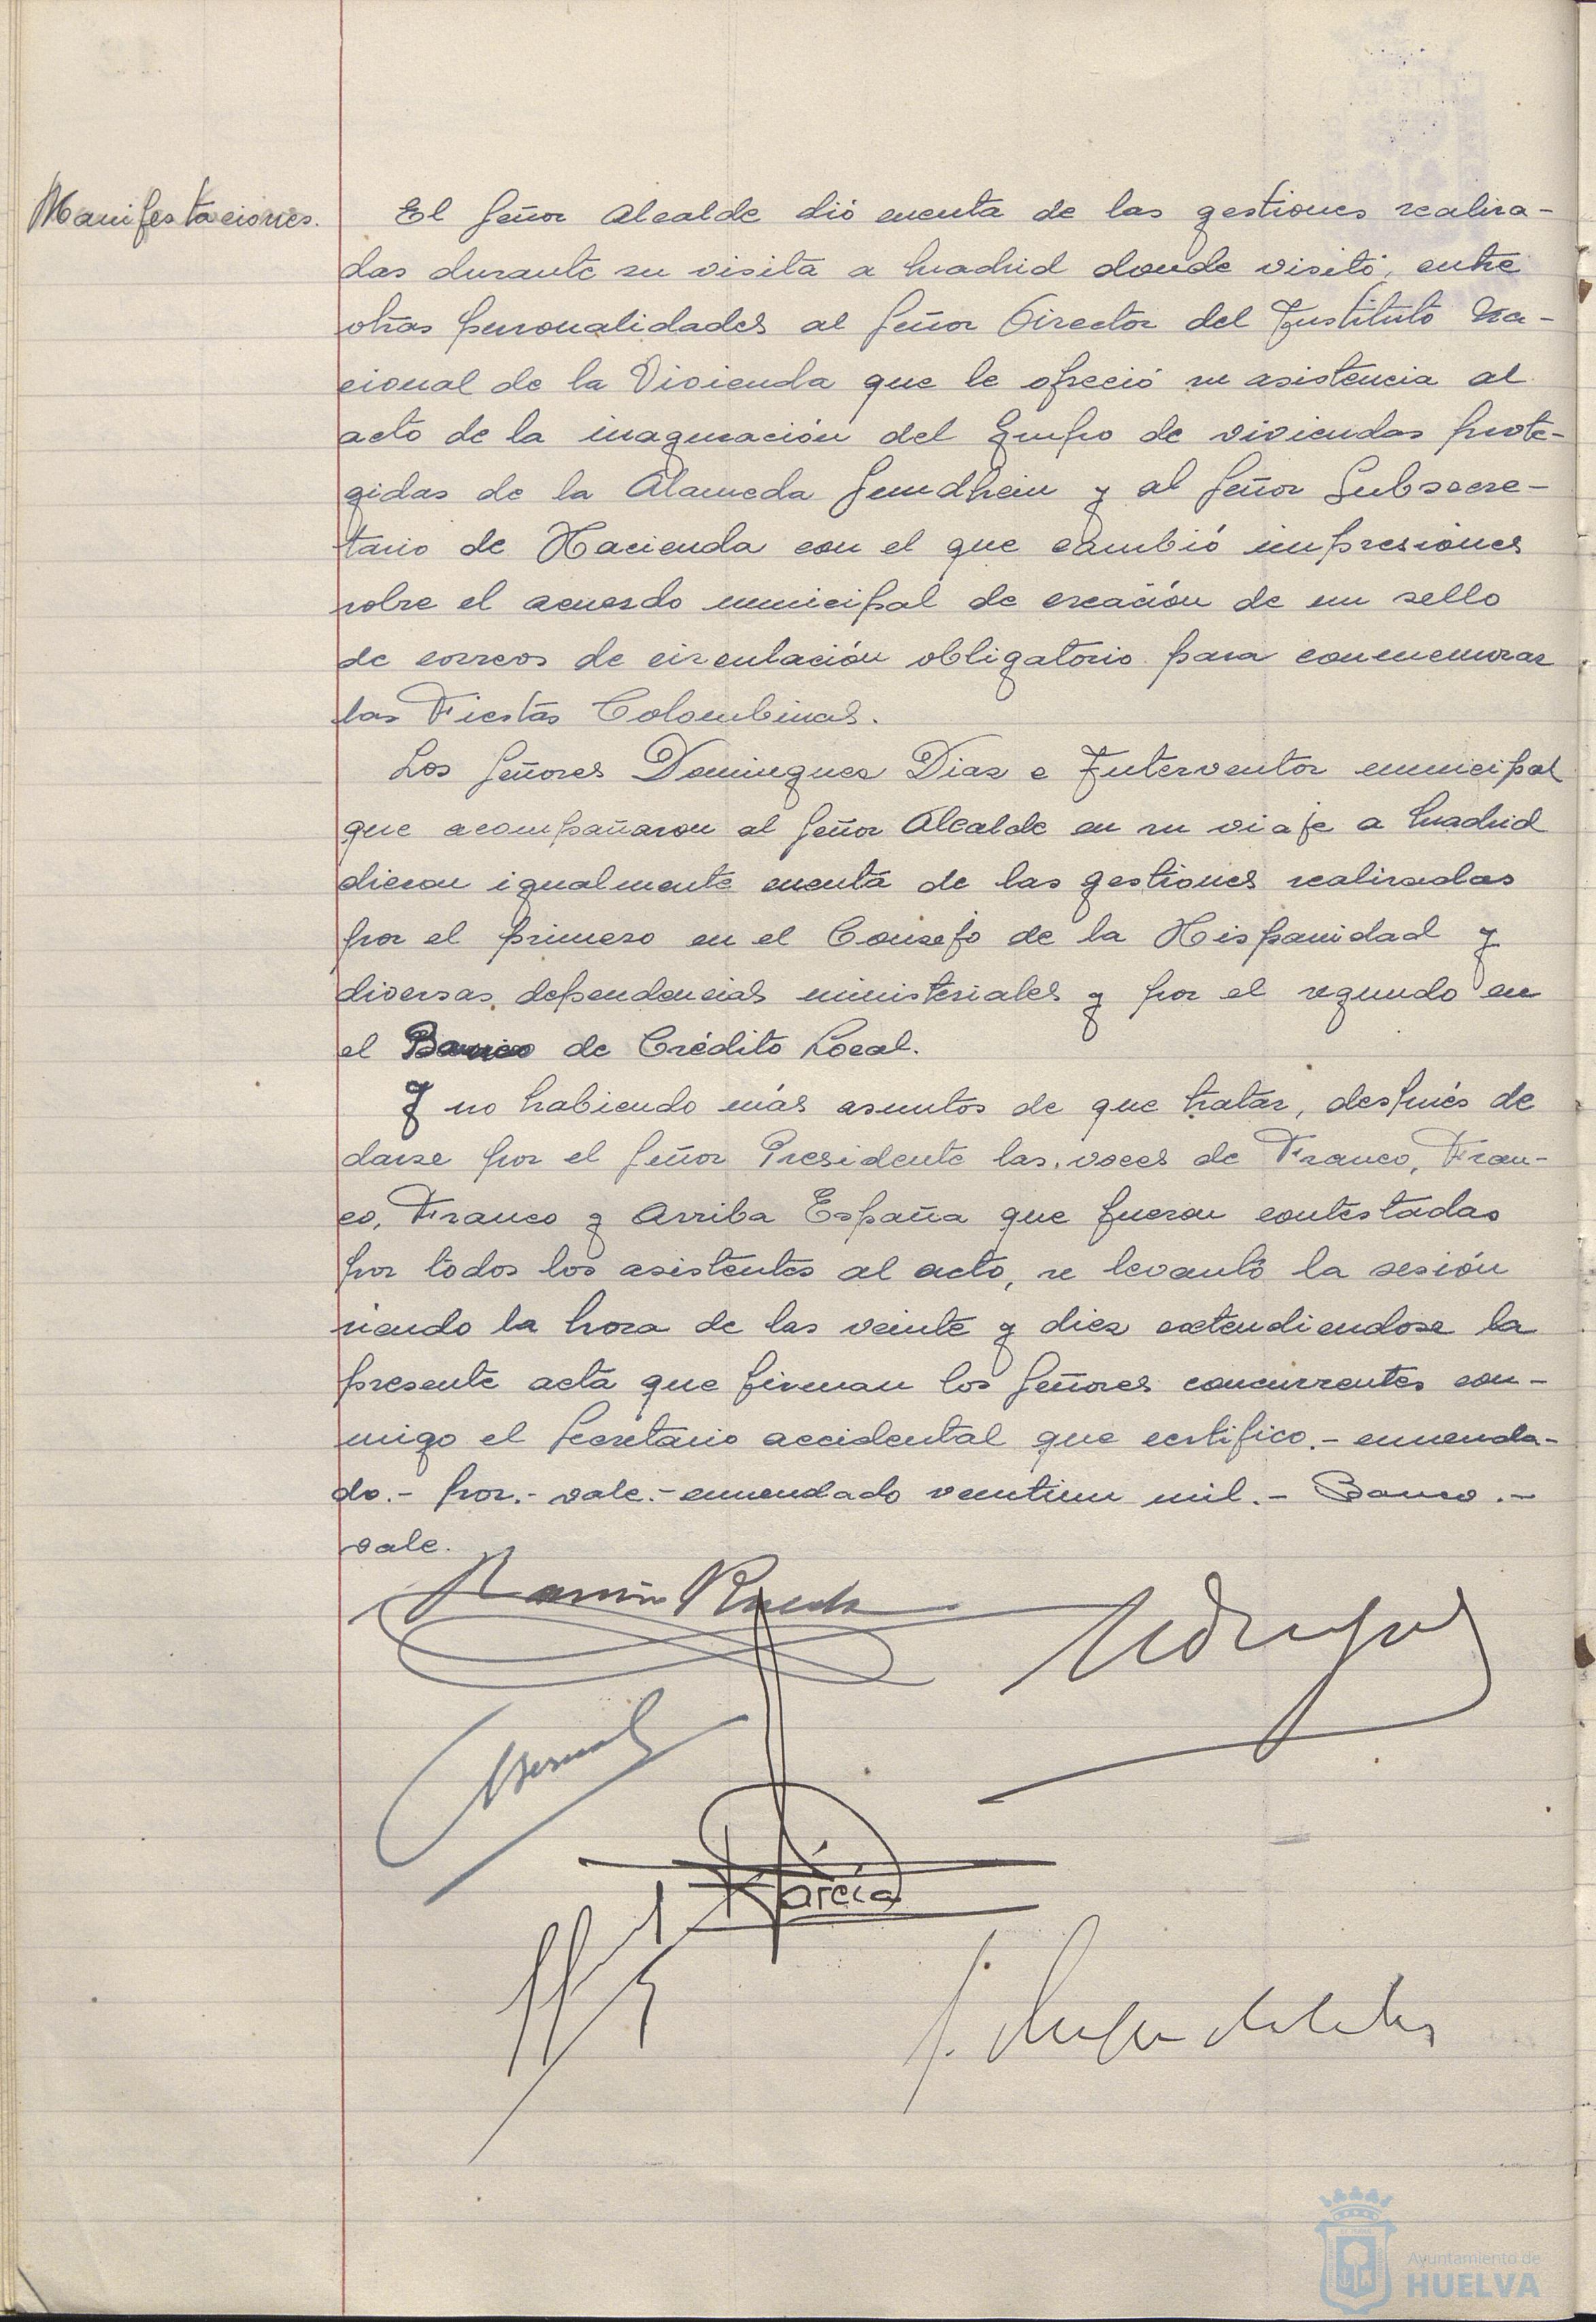 Manifestaciones.
El Señor Alcalde dió cuenta de las gestiones realiza-
das durante su visita a Madrid donde visitó, entre
otras personalidades al Señor Director del Instituto Na-
cional de la Vivienda que le ofreció su asistencia al
acto de la inaguración del Grupo de viviendas prote-
gidas de la Alameda Sundhein y al Señor Subsecre-
tario de Hacienda con el que cambió impresiones
sobre el acuerdo municipal de creación de un sello
de correos de circulación obligatorio para conmemorar
las Fiestas Colombinas.
Los Señores Dominguez Diaz e Interventor municipal
que acompañaron al Señor Alcalde en su viaje a Madrid
dieron igualmente cuenta de las gestiones realizadas
por el primero en el Consejo de la Hispanidad y
diversas dependencias ministeriales y por el segundo en
el Banco de Crédito Local.
Y no habiendo más asuntos de que tratar, después de
darse por el Señor Presidente las voces de Franco, Fran-
co, Franco y Arriba España que fueron contestadas
por todos los asistentes al acto, se levantó la sesión
siendo la hora de las veinte y diez extendiendose la
presente acta que firman los Señores concurrentes con-
migo el Secretario accidental que certifico.- enmenda-
do.- por.- vale.- enmendado veintiun mil.- Banco.-
vale.
Ramón Rueda
García
Ayuntamiento de
HUELVA